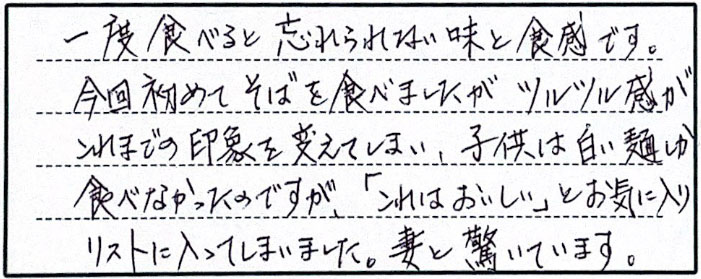 一度食べると忘れられない味と食感です。
今回初めてそばを食べましたが ツルツル感が
これまでの印象を変えてしまい、子供は白い麺しか
食べなかったのですが、「これはおいしい」とお気に入り
リストに入ってしまいました。妻と驚いています。